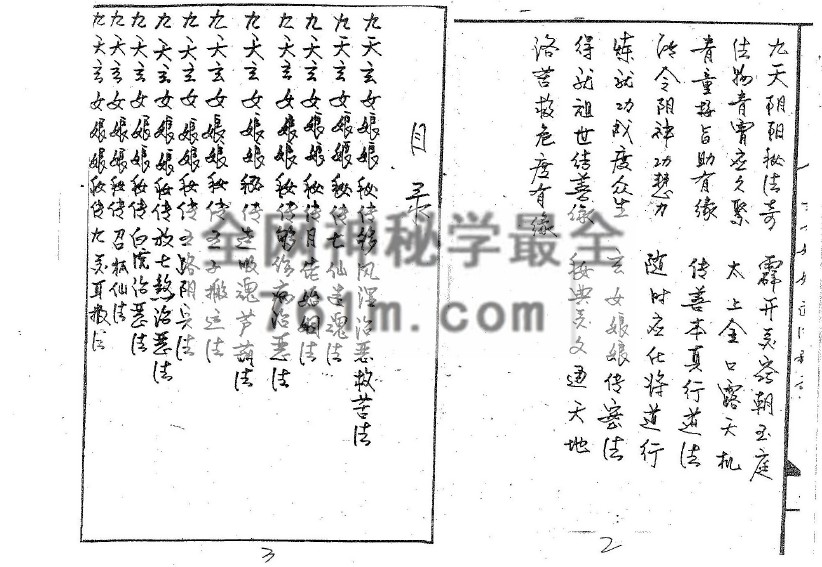 九天阴阳秘法奇 霹开灵窍朝玉庭
法物青霄 久聚 太上金口露天机
青童接旨助有缘 传善本真行道法
法令阴神功慧力 随时应化将道行
炼就功成度众生 玄女娘娘传密法
得就祖世传善缘 秘典灵文通天地
洛苦救危度有缘
2
目录
九天玄女娘娘秘传 风湿治恶救苦法
九天玄女娘娘秘传七仙追魂法
九天玄女娘娘秘传月佬 姻法
九天玄女娘娘秘传 治病治恶法
九天玄女娘娘秘传 造吸魂芦葫法
九天玄女娘娘秘传五子搬运法
九天玄女娘娘秘传五路阴兵法
九天玄女娘娘秘传放七煞治恶法
九天玄女娘娘秘传白 治恶法
九天玄女娘娘秘传召 仙法
九天玄女娘娘秘传九灵耳报法
3
全网神秘学最全
761m.com